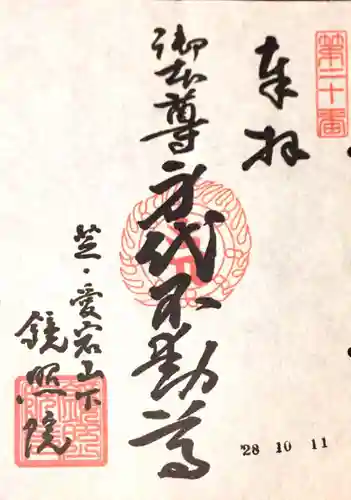 第二十番
奉拝
御本尊身代不動尊
芝・愛宕山下
鏡照院
28 10 11
鏡照院